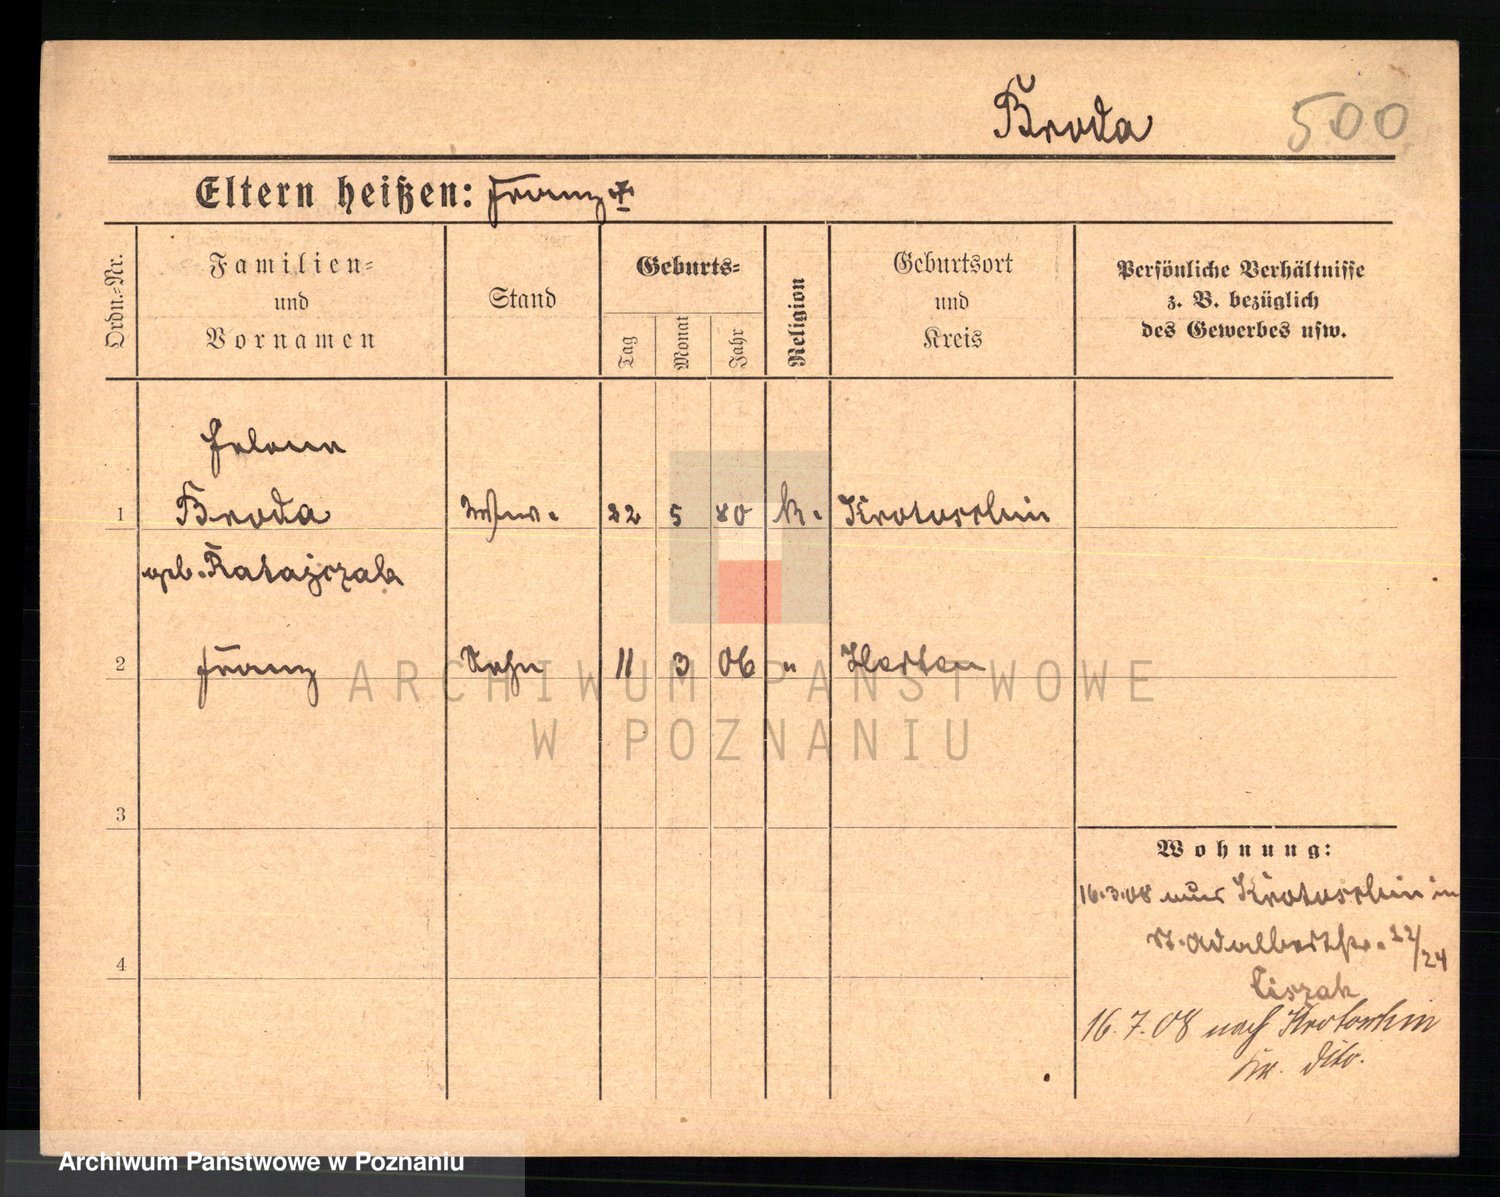 Broda 500
Eltern heißen: Franz †
Ordn.-Nr.
Familien-
und
Vornamen
Stand
Geburts-
Tag
Monat
Jahr
Religion
Geburtsort
und
Kreis
Persönliche Verhältnisse
z. B. bezüglich
des Gewerbes usw.
Helene
1 Broda Wwe. 22 5 80 k. Krotoschin
geb. Ratajczak
2 Franz Sohn 11 3 06 " Herten
3
4
Wohnung:
16.3.08 aus Krotoschin in
St. Adalbertstr. 22/24
Ciszak
16.7.08 nach Krotoschin
Kr. dito.
ARCHIWUM PAŃSTWOWE
W POZNANIU
Archiwum Państwowe w Poznaniu